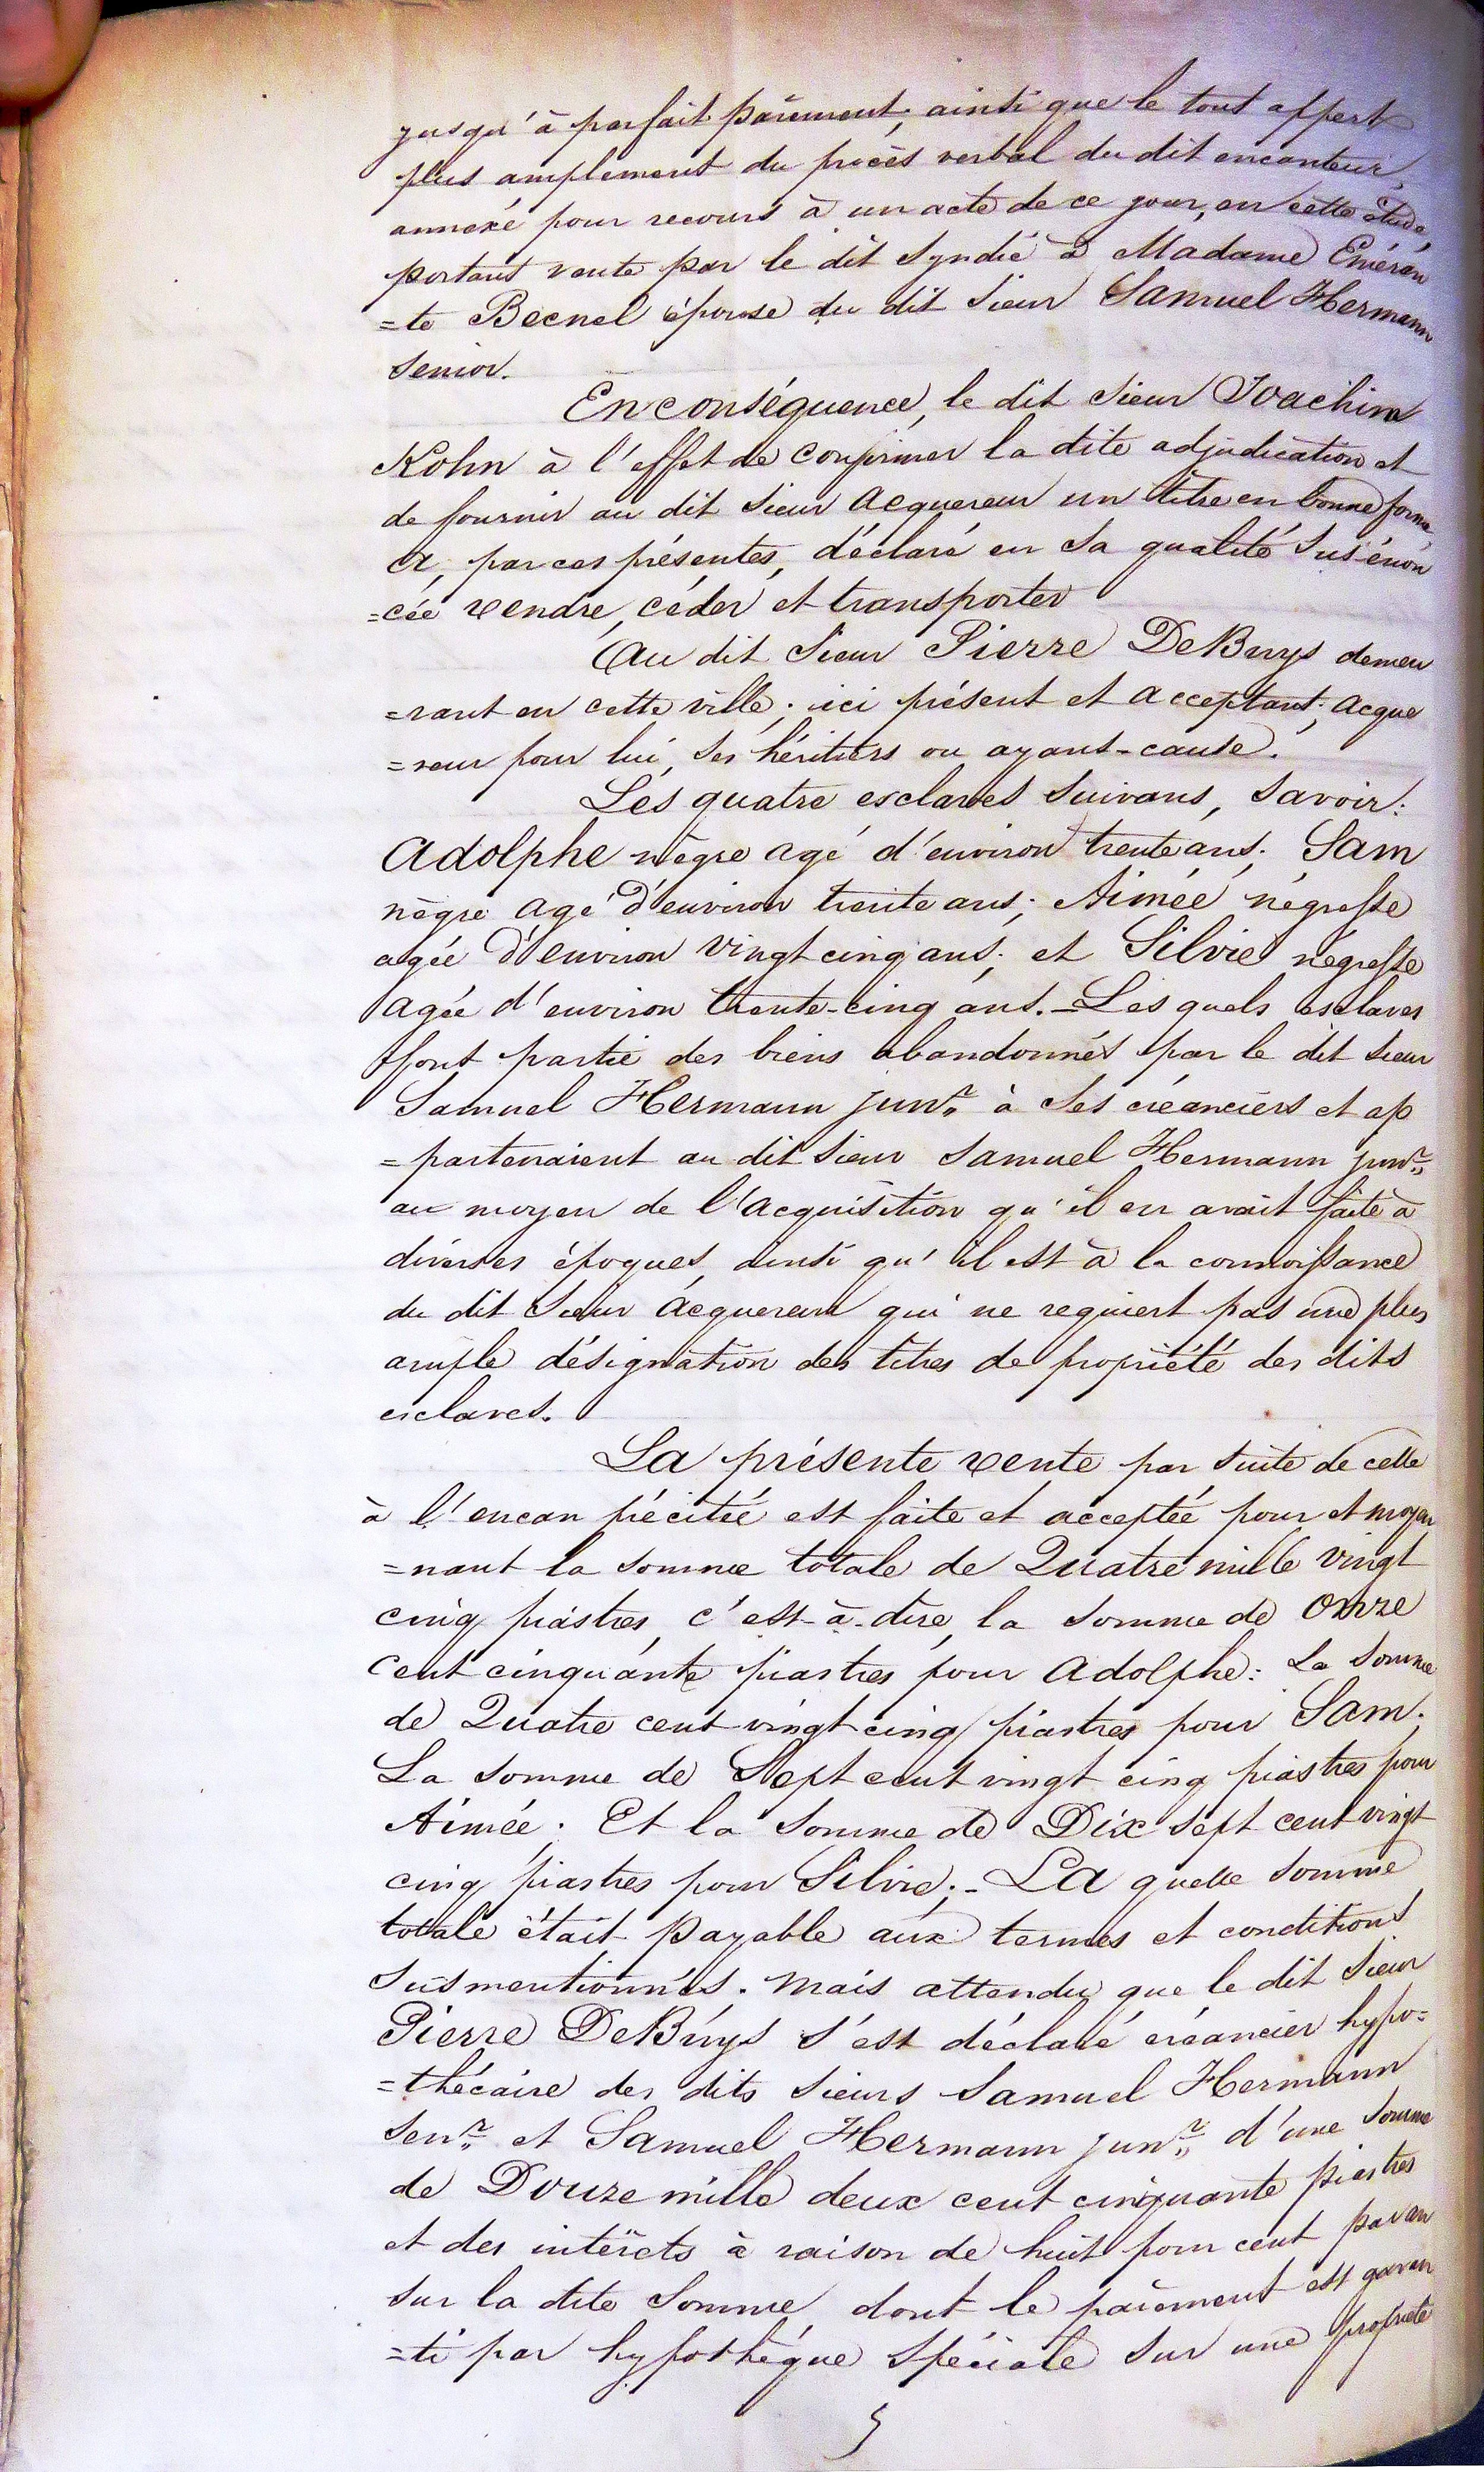 jusqu'à parfait païement; ainsi que le tout appert
plus amplement du procès verbal du dit encanteur,
annexé pour recours à un acte de ce jour, en cette étude,
portant vente par le dit Syndic à Madame Eméran
=te Becnel épouse du dit Sieur Samuel Hermann
Senior.
En conséquence, le dit Sieur Joachim
Kohn à l'effet de confirmer la dite adjudication et
de fournir au dit Sieur acquereur un titre en bonne forme,
a, par ces présentes, déclaré en sa qualité sus-énon
=cée vendre, céder et transporter
Au dit Sieur Pierre DeBuys demeu
=rant en cette ville; ici présent et acceptant; acque
=reur pour lui, ses héritiers ou ayant-cause.
Les quatre esclaves suivans, savoir:
Adolphe nègre agé d'environ trente ans; Sam
nègre agé d'environ trente ans; Aimée négresse
agée d'environ vingt cinq ans; et Silvie négresse
agée d'environ trente-cinq ans. – Les quels esclaves
font partie des biens abandonnés par le dit Sieur
Samuel Hermann junr. à ses créanciers et ap
=partenaient au dit Sieur Samuel Hermann junr.
au moyen de l'acquisition qu'il en avait faite à
diverses époques, ainsi qu'il est à la connoissance
du dit Sieur acquereur qui ne requiert pas une plus
ample désignation des titres de propriété des dits
esclaves.
La présente vente par suite de celle
à l'encan précitée est faite et acceptée pour et moyen
=nant la somme totale de Quatre mille vingt
cinq piastres, c'est-à-dire, la somme de onze
cent cinquante piastres pour Adolphe: La somme
de Quatre cent vingt cinq piastres pour Sam.
La somme de Sept cent vingt cinq piastres pour
Aimée; Et la somme de Dix sept cent vingt
cinq piastres pour Silvie; – La quelle somme
totale était payable aux termes et conditions
susmentionnés. Mais attendu que le dit Sieur
Pierre DeBuys s'est déclaré créancier hypo=
=thécaire des dits Sieurs Samuel Hermann
Senr. et Samuel Hermann junr. d'une somme
de Douze mille deux cent cinquante piastres
et des intérêts à raison de huit pour cent par an
sur la dite somme, dont le païement est garan
=ti par hypothèque spéciale sur une propriété